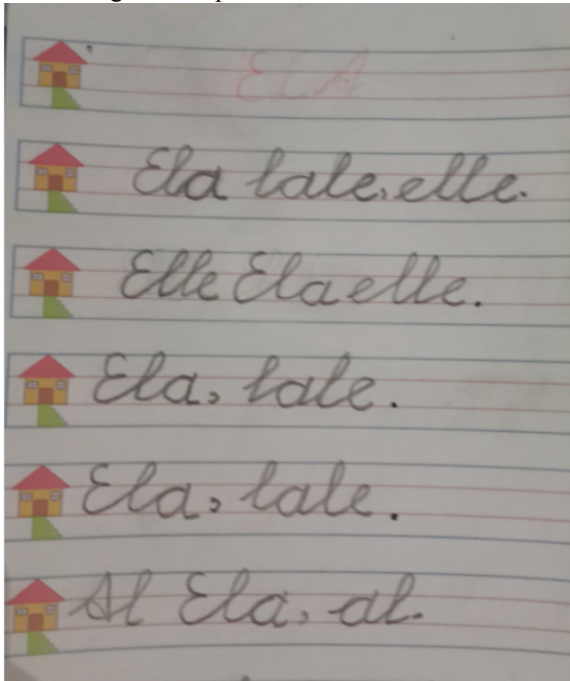 ELA
Ela lale, elle.
Elle Ela elle.
Ela, lale.
Ela, lale.
Al Ela, al.